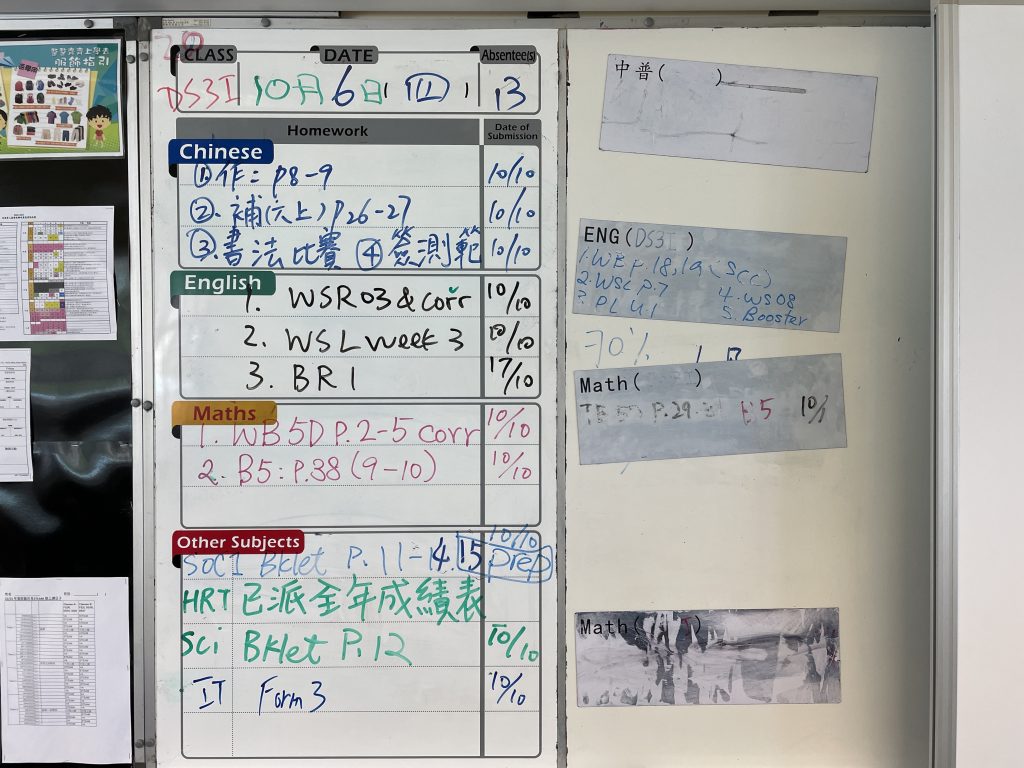 CLASS DATE Absentee(s)
DS3I 10月6日(四) 13
Homework Date of Submission
Chinese
①作：P8-9 10/10
②. 補(六上)P26-27 10/10
③.書法比賽 ④簽測範 10/10
English
1. WSR03 & corr 10/10
2. WSL week 3 10/10
3. BR1 17/10
Maths
1. WB 5D P.2-5 corr 10/10
2. B5: P.38 (9-10) 10/10
Other Subjects
10/10
SOCI Bklet P. 11-14.15 Prep
HRT 已派全年成績表
Sci Bklet P.12 10/10
IT Form 3 10/10
服飾指引
中普( )
ENG(DS3I)
2. WSL P.7 4. WS08
5. Booster
70%
Math( )
TB 5D P.29- 5 10/
Math( )